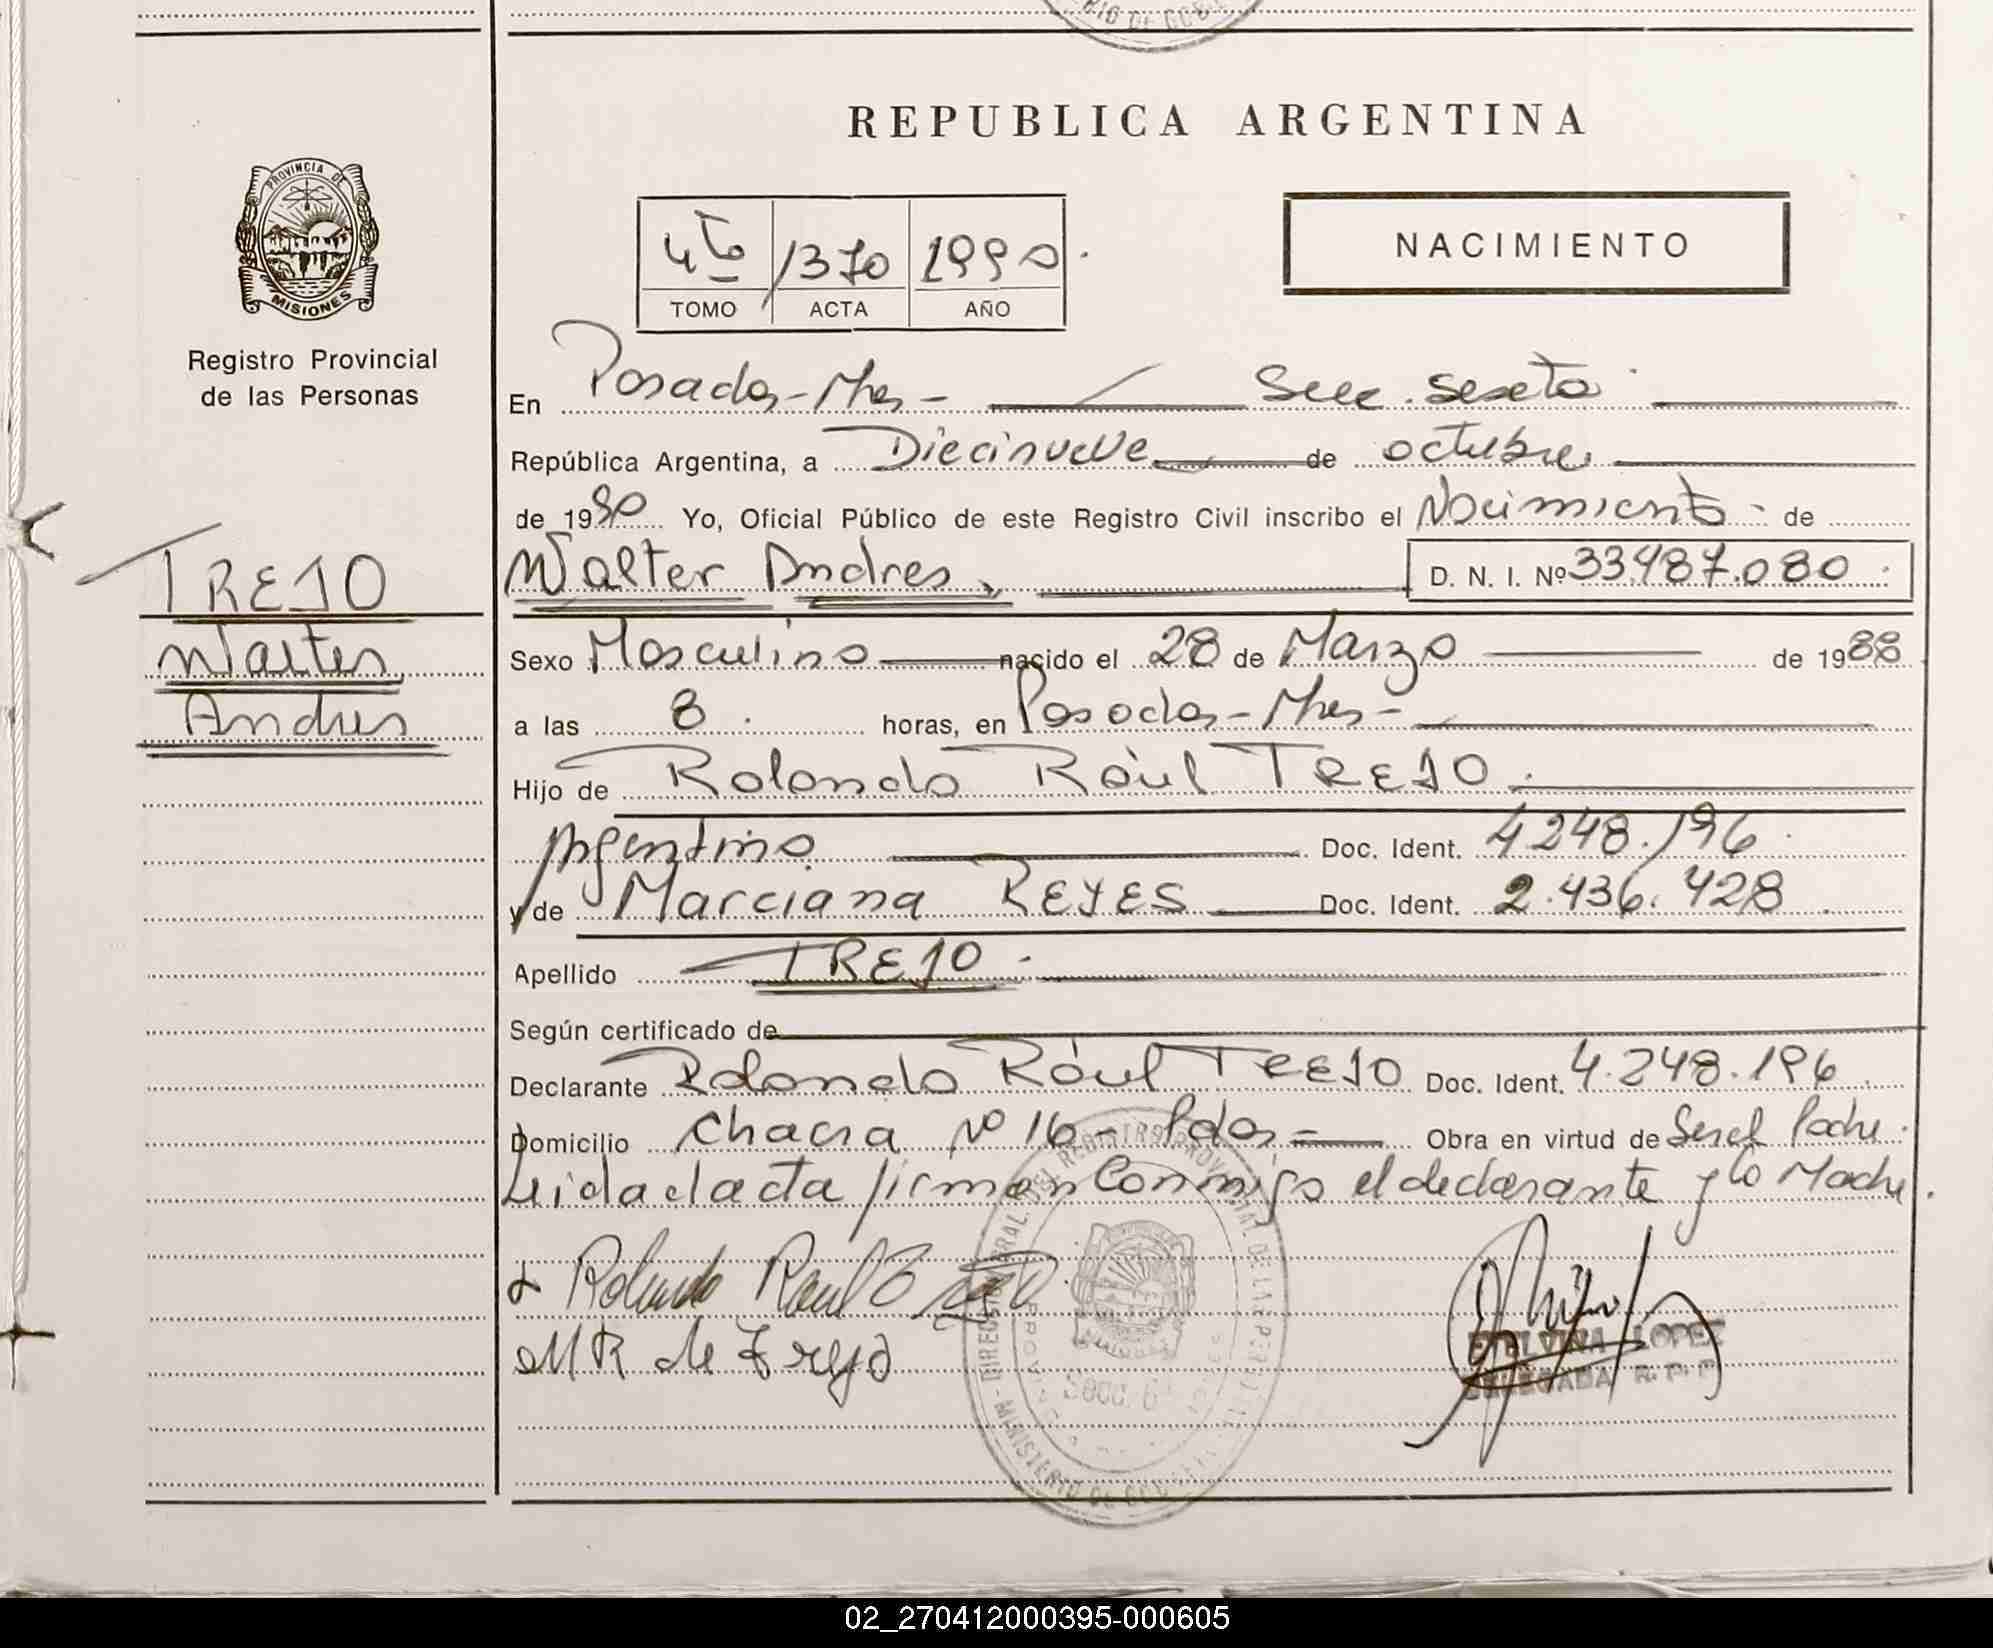 RIO DE GOBI
REPUBLICA ARGENTINA
PROVINCIA DE
MISIONES
Registro Provincial
de las Personas
4to 1370 1990
TOMO ACTA AÑO
NACIMIENTO
En Posadas-Mnes- Secc. sexta
República Argentina, a Diecinueve de octubre
de 1990 Yo, Oficial Público de este Registro Civil inscribo el Nacimiento de
TREJO
Walter Andres
Walter Andres, D. N. I. Nº 33.487.080
Sexo Masculino nacido el 28 de Marzo de 1988
a las 8 horas, en Posadas-Mnes-
Hijo de Rolando Raúl TREJO
Argentino Doc. Ident. 4248.196
y de Marciana REYES Doc. Ident. 2.436.428
Apellido TREJO
Según certificado de
Declarante Rolando Raúl TREJO Doc. Ident. 4.248.196
Domicilio Chacra Nº 16- Pdas- Obra en virtud de Ser el Padre.
Leida el acta firman Conmigo el declarante y la Madre.
Rolando Raul Trejo
MR de Trejo
ETELVINA LOPEZ
DELEGADA R. P. P.
02_270412000395-000605